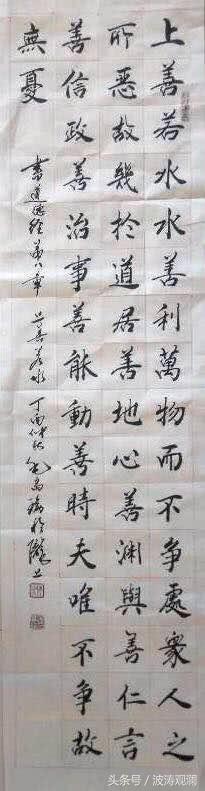 上善若水水善利萬物而不争處衆人之
所惡故幾於道居善地心善渊與善仁言
善信政善治事善能動善時夫唯不争故
無憂
書道德经第八章 上善若水 丁酉仲秋 於隴上
头条号／波涛观澜